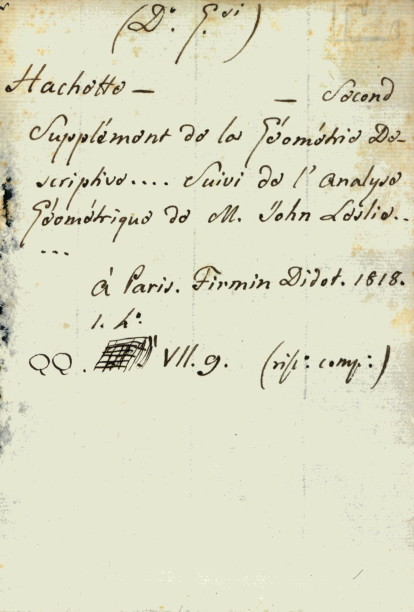 (D.º G.si)
Hachette — — Second
Supplément de la Géométrie De-
scriptive.... Suivi de l'Analyse
Géométrique de M. John Leslie..
...
à Paris. Firmin Didot. 1818.
1. 4.º
QQ. VII. 9. (risp.º comp.º:)